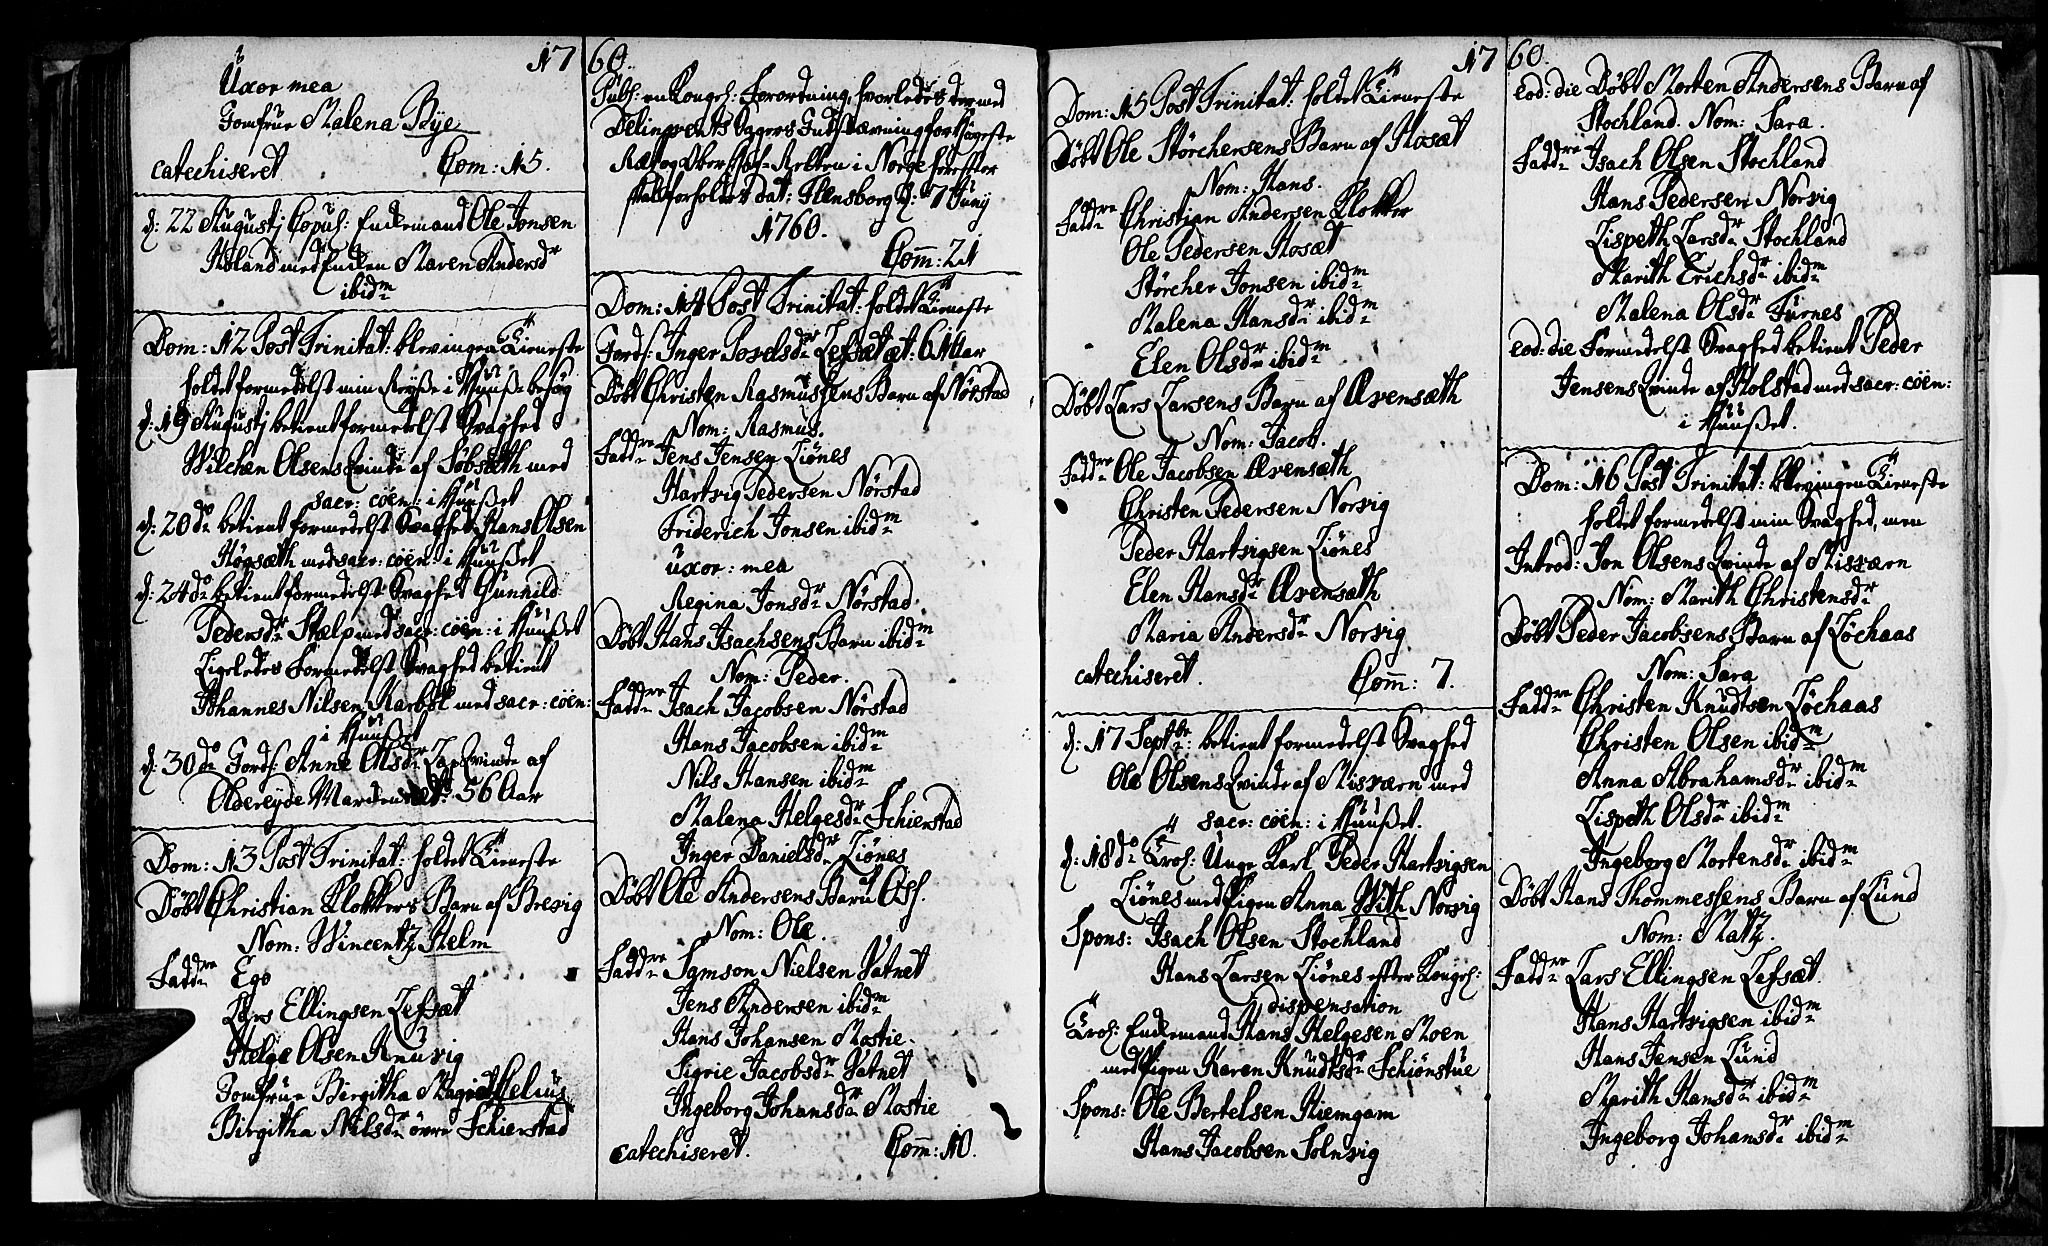 1760.
Uxor mea
Jomfrue Malena Bÿe
catechiseret Com: 15.
d: 22 Augustj Copul: Enckemand Ole Jonsen
Høland med Encken Maren Andersdr
ibidm
Dom: 12 Post Trinitat: blev ingen Tieneste
holdet formedelst min Reyße i Huuß-besøg
d: 19 Augustj betient formedelst Svaghed
Wilchen Olsens Qvinde af Søbsæth med
sacr: cöen: i Huußet
d: 20do betient formedelst Svaghed Hans Olsen
Høgsæth med sacr: cöen: i Huußet
d: 24do betient formedelst Svaghed Gunhild
Pedersdr Skelp med sacr: cöen: i Huußet
Ligeledes Formedelst Svaghed betient
Johannes Nilsen Karbøl med sacr: cöen:
i Huußet
d: 30do Jords: Anne Olsdr Lap Qvinde af
56 Aar
Dom: 13 Post Trinitat: holdet Tieneste
Døbt Christian Klokkers Barn af Brevig
Nom: Wincentz Helm
Faddre Ego
Lars Ellingsen Lefsæt
Helge Olsen Knuvig
Jomfrue Birgitha Margret Helius
Birgitha Nilsdr övre Schierstad
Publ: en Kongel: Forordning, hvorledes der med
Delinqvents Sagers Indstævning for Høyeste
Ret og OberHof-Retten i Norge herefter
skall forholdes dat: Flensborg d: 7 Juny
1760.
Com̄: 21
Dom: 14 Post Trinitat: holdet Tieneste
Jords: Inger Povelsdr Lefsæt æt: 61 Aar
Døbt Christen Rasmussens Barn af Nørstad
Nom: Rasmus.
Faddre Jens Jensen Liönes
Hartvig Pedersen Nörstad
Friderich Jonsen ibidm
uxor: mea
Regina Jonsdr Nörstad.
Døbt Hans Isachsens Barn ibidm
Nom: Peder.
Faddre Isach Jacobsen Nörstad
Hans Jacobsen ibidm
Nils Hansen ibidm
Malena Helgesdr Schierstad
Inger Danielsdr Liönes
Døbt Ole Andersens Barn
Nom: Ole.
Faddre Symson Nielsen Vatnet
Jens Andersen ibidm
Hans Johansen Mostie.
Sigrie Jacobsdr Vatnet
Ingeborg Johansdr Mostie
catechiseret. Com̄: 10.
1760.
Dom: 15 Post Trinitat: holdet Tieneste
Døbt Ole Störchersens Barn af Hosæt
Nom: Hans.
Faddre Christian Andersen Klokker
Ole Pedersen Hosæt
Störcher Jonsen ibidm
Malena Hansdr ibidm
Elen Olsdr ibidm
Døbt Lars Larsens Barn af Ævensæth
Nom: Jacob.
Faddre Ole Jacobsen Ævensæth
Christen Pedersen Norvig
Peder Hartvigsen Liönes
Elen Hansdr Ævensæth
Maria Andersdr Norvig
catechiseret. Com̄: 7.
d: 17 Septbr: betient formedelst Svaghed
Ole Olsens Qvinde af Misværn med
sacr: cöen: i Huußet.
d: 18do Trol: Unge Karl Peder Hartvigsen
Liönes med Pigen Anna With Norvig
Spons: Isach Olsen Stochland
Hans Larsen Liönes efter Kongel:
dispensation
Trol: Enckemand Hans Helgesen Moen
med Pigen Karen Knudtsdr Schiönstue
Spons: Ole Bertelsen Hiemgam
Hans Jacobsen Solnvig
eod: die Døbt Morten Andersens Barn af
Stochland. Nom: Sara.
Faddre Isach Olsen Stochland
Hans Pedersen Norvig
Lispeth Larsdr Stochland
Marith Erichsdr ibidm
Malena Olsdr Furnes
eod: die Formedelst Svaghed betient Peder
Jensens Qvinde af Holstad med sacr: cöen:
i Huußet.
Dom: 16 Post Trinitat: blev ingen Tieneste
holdet formedelst min Svaghed, men
Introd: Jon Olsens Qvinde af Misværn
Nom: Marith Christensdr
Døbt Peder Jacobsens Barn af Löchaas
Nom: Sara
Faddre Christen Knudtsen Löchaas
Christen Olsen ibidm
Anna Abrahamsdr ibidm
Lispeth Olsdr ibidm
Ingeborg Mortensdr ibidm
Døbt Hans Thommessens Barn af Lund
Nom: Matz.
Faddre Lars Ellingsen Lefsæt
Hans Hartvigsen ibidm
Hans Jensen Lund
Marith Hansdr ibidm
Ingeborg Johansdr ibidm